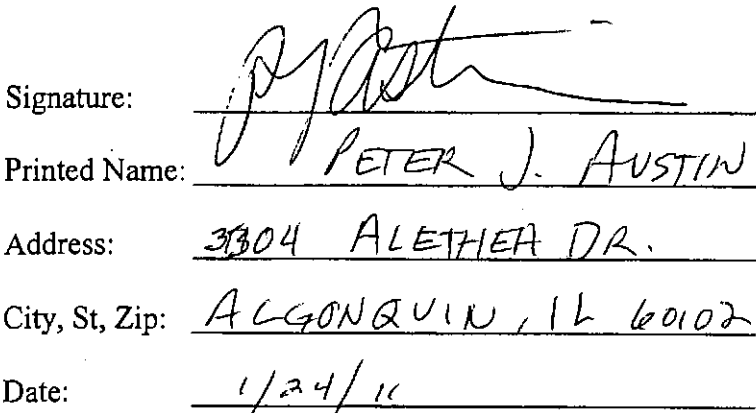 Signature: PJ Austin
Printed Name: PETER J. AUSTIN
Address: ALETHEA DR.
City, St, Zip: ALGONQUIN, IL 60102
Date: 1/24/11